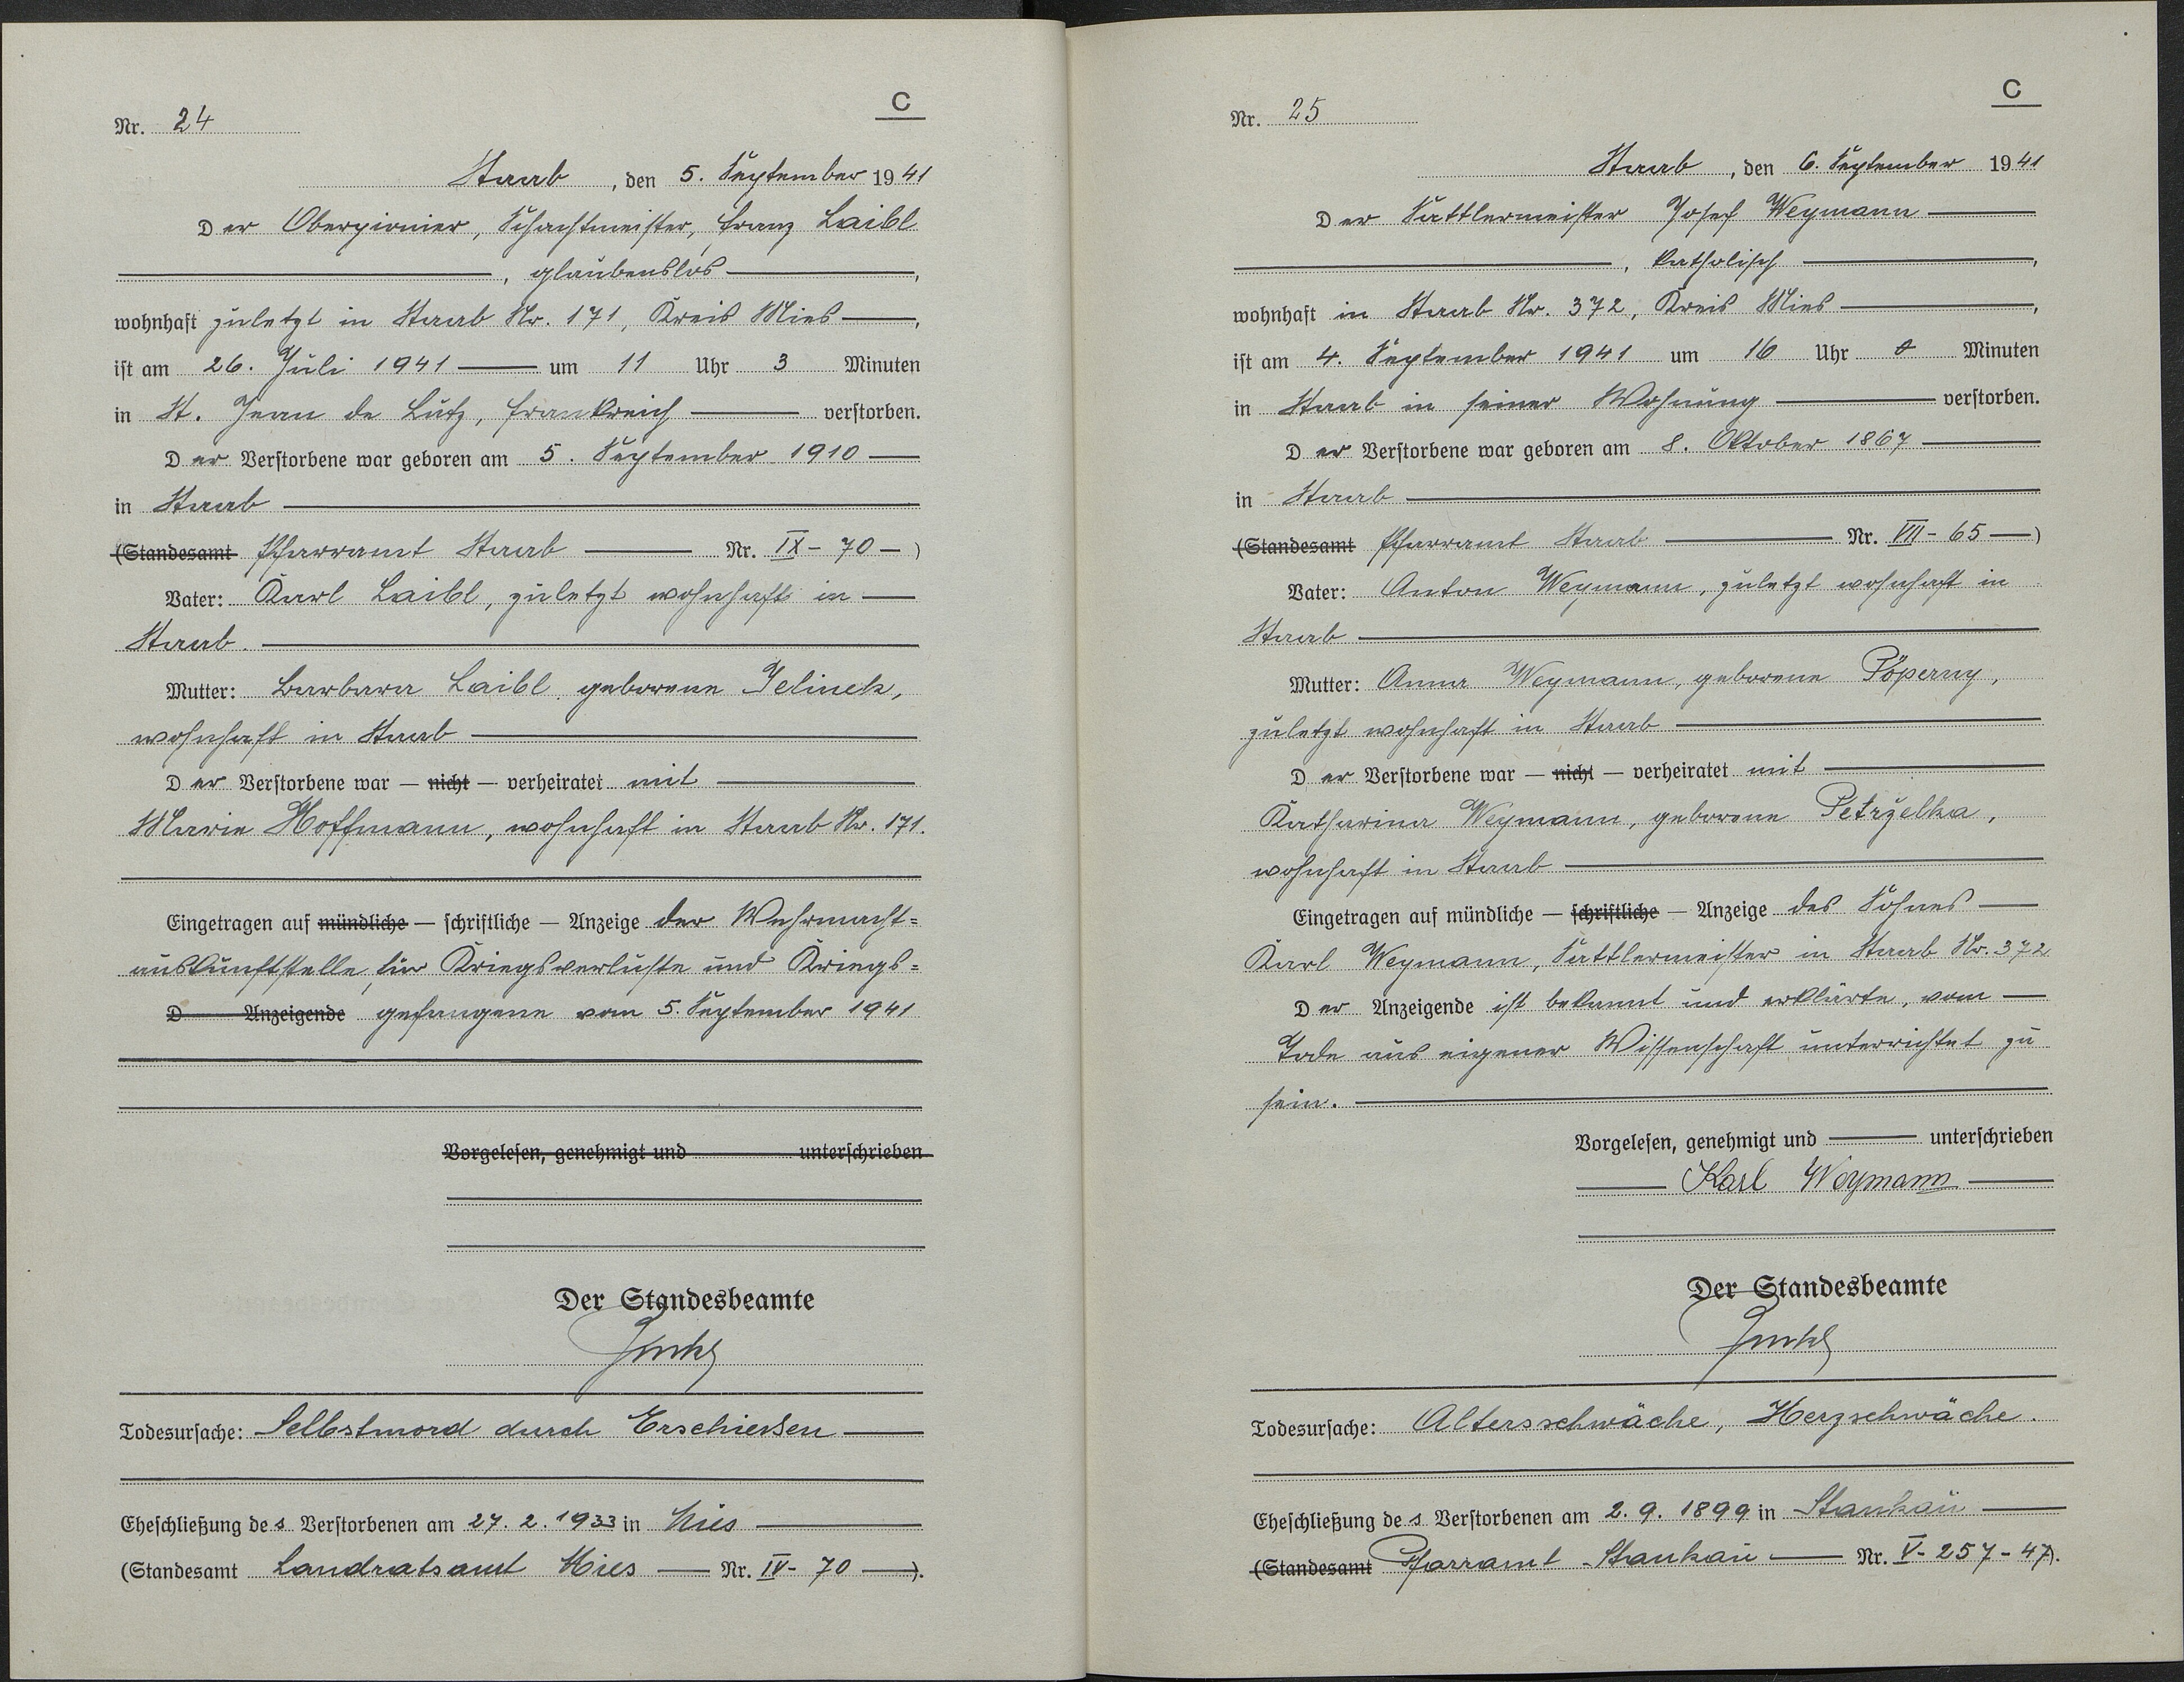 C
Nr. 24
Staab, den 5. September 1941
Der Oberpionier, Schachtmeister, Franz Laibl
, glaubenslos ,
wohnhaft zuletzt in Staab Nr. 171, Kreis Mies ,
ist am 26. Juli 1941 um 11 Uhr 3 Minuten
in St. Jean de Lutz, Frankreich verstorben.
Der Verstorbene war geboren am 5. September 1910
in Staab
(Standesamt Pfarramt Staab Nr. IX - 70 - )
Vater: Karl Laibl, zuletzt wohnhaft in
Staab.
Mutter: Barbara Laibl geborene Jelinek,
wohnhaft in Staab
Der Verstorbene war — nicht — verheiratet mit
Marie Hoffmann, wohnhaft in Staab Nr. 171.
Eingetragen auf mündliche — schriftliche — Anzeige der Wehrmacht=
auskunftstelle für Kriegsverluste und Kriegs=
D Anzeigende gefangene vom 5. September 1941
Vorgelesen, genehmigt und unterschrieben
Der Standesbeamte
Todesursache: Selbstmord durch Erschießen
Eheschließung des Verstorbenen am 27. 2. 1933 in Mies
(Standesamt Landratsamt Mies Nr. IV - 70 ).
C
Nr. 25
Staab, den 6. September 1941
Der Sattlermeister Josef Weymann
, katholisch ,
wohnhaft in Staab Nr. 372, Kreis Mies ,
ist am 4. September 1941 um 16 Uhr 0 Minuten
in Staab in seiner Wohnung verstorben.
Der Verstorbene war geboren am 8. Oktober 1867
in Staab
(Standesamt Pfarramt Staab Nr. VII - 65 )
Vater: Anton Weymann, zuletzt wohnhaft in
Staab
Mutter: Anna Weymann, geborene Pöperny,
zuletzt wohnhaft in Staab
Der Verstorbene war — nicht — verheiratet mit
Katharina Weymann, geborene Petrželka,
wohnhaft in Staab
Eingetragen auf mündliche — schriftliche — Anzeige des Sohnes
Karl Weymann, Sattlermeister in Staab Nr. 372
Der Anzeigende ist bekannt und erklärte, vom
Tode aus eigener Wissenschaft unterrichtet zu
sein.
Vorgelesen, genehmigt und unterschrieben
Karl Weymann
Der Standesbeamte
Todesursache: Altersschwäche, Herzschwäche.
Eheschließung des Verstorbenen am 2. 9. 1899 in Stankau
(Standesamt Pfarramt Stankau Nr. V - 257 - 47).